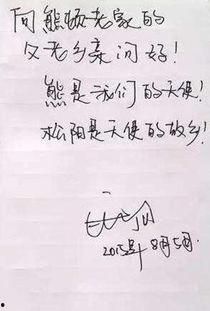 向熊顿老家的
父老乡亲问好!
熊是我们的天使!
松阳是天使的故乡!
2015年8月5日.